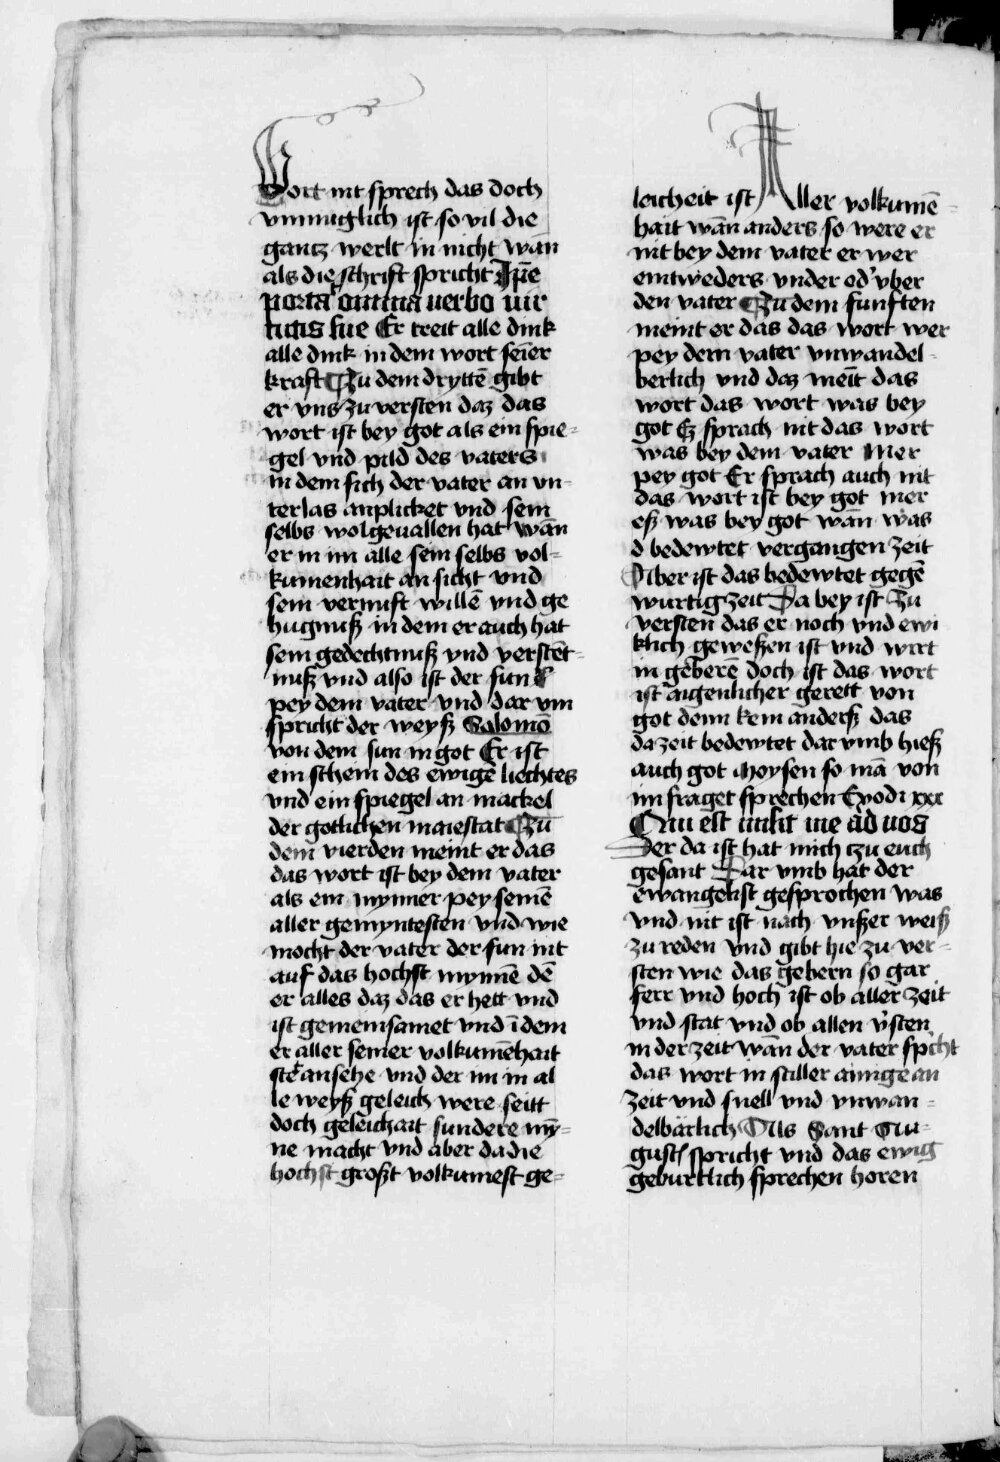 Wort nit sprech das doch
vnmuglich ist so vil die
gantz werlt in nicht wān
als die schrift spricht Ip̄e
porta' omnia uerbo uir
tutis sue Er treit alle dink
alle dink in dem wort seīer
kraft Zu dem dryttē gibt
er vns zu versten daz das
wort ist bey got als ein spie-
gel vnd pild des vaters
in dem sich der vater an vn-
terlas anplicket vnd sein
selbs wolgeuallen hat wān
er in im alle sein selbs vol-
kumenhait an sicht vnd
sein vernuft willē vnd ge
hugnuß in dem er auch hat
sein gedechtnuß vnd verstēt-
nuß vnd also ist der sun
pey dem vater vnd dar vm
spricht der weyß Salomō
von dem sun in got Er ist
ein schein des ewigē liechtes
vnd ein spiegel an mackel
der gotlichen maiestat Czu
dem vierden meint er das
das wort ist bey dem vater
als ein mynner pey seinē
aller gemyntesten vnd wie
mocht der vater der sun nit
auf das hochst mynnē dē
er alles daz das er hett vnd
ist gemeinsamet vnd ī dem
er aller seiner volkumēhait
stet ansehe vnd der im in al
le weyß geleich were seitt
doch geleichait sundere mȳ-
ne macht vnd aber da die
hochst großt volkumest ge-
leicheit ist Aller volkumē-
hait wān anders so were er
nit bey dem vater er wer
eintweders vnder od' vber
den vater Czu dem funften
meint er das das wort wer
pey dem vater vnwandel-
berlich vnd daz meīt das
wort das wort was bey
got Ez sprach nit das wort
was bey dem vater Mer
pey got Er sprach auch nit
das wort ist bey got mer
eß was bey got wān was
d bedewtet vergangen zeit
Aber ist das bedewtet gegē
wurtig zeit Da bey ist zu
versten das er noch vnd ewi
klich geweßen ist vnd wirt
in geberē doch ist das wort
ist aigenlicher gerett von
got denn kein anderß das
da zeit bedewtet dar vmb hieß
auch got Moysen so mā von
im fraget sprechen Exodi xxx
Qui est misit me ad uos
Der da ist hat mich czu euch
gesant Dar vmb hat der
ewangelist gesprochen was
vnd nit ist nach vnßer weiß
zu reden vnd gibt hie zu ver-
sten wie das gebern so gar
ferr vnd hoch ist ob aller zeit
vnd stat vnd ob allen v'sten
in der zeit wān der vater sp'cht
das wort in stiller ainige an
zeit vnd snell vnd vnwan-
delbärlich Als Sant Au-
gust' spricht vnd das ewig
geburtlich sprechen horen